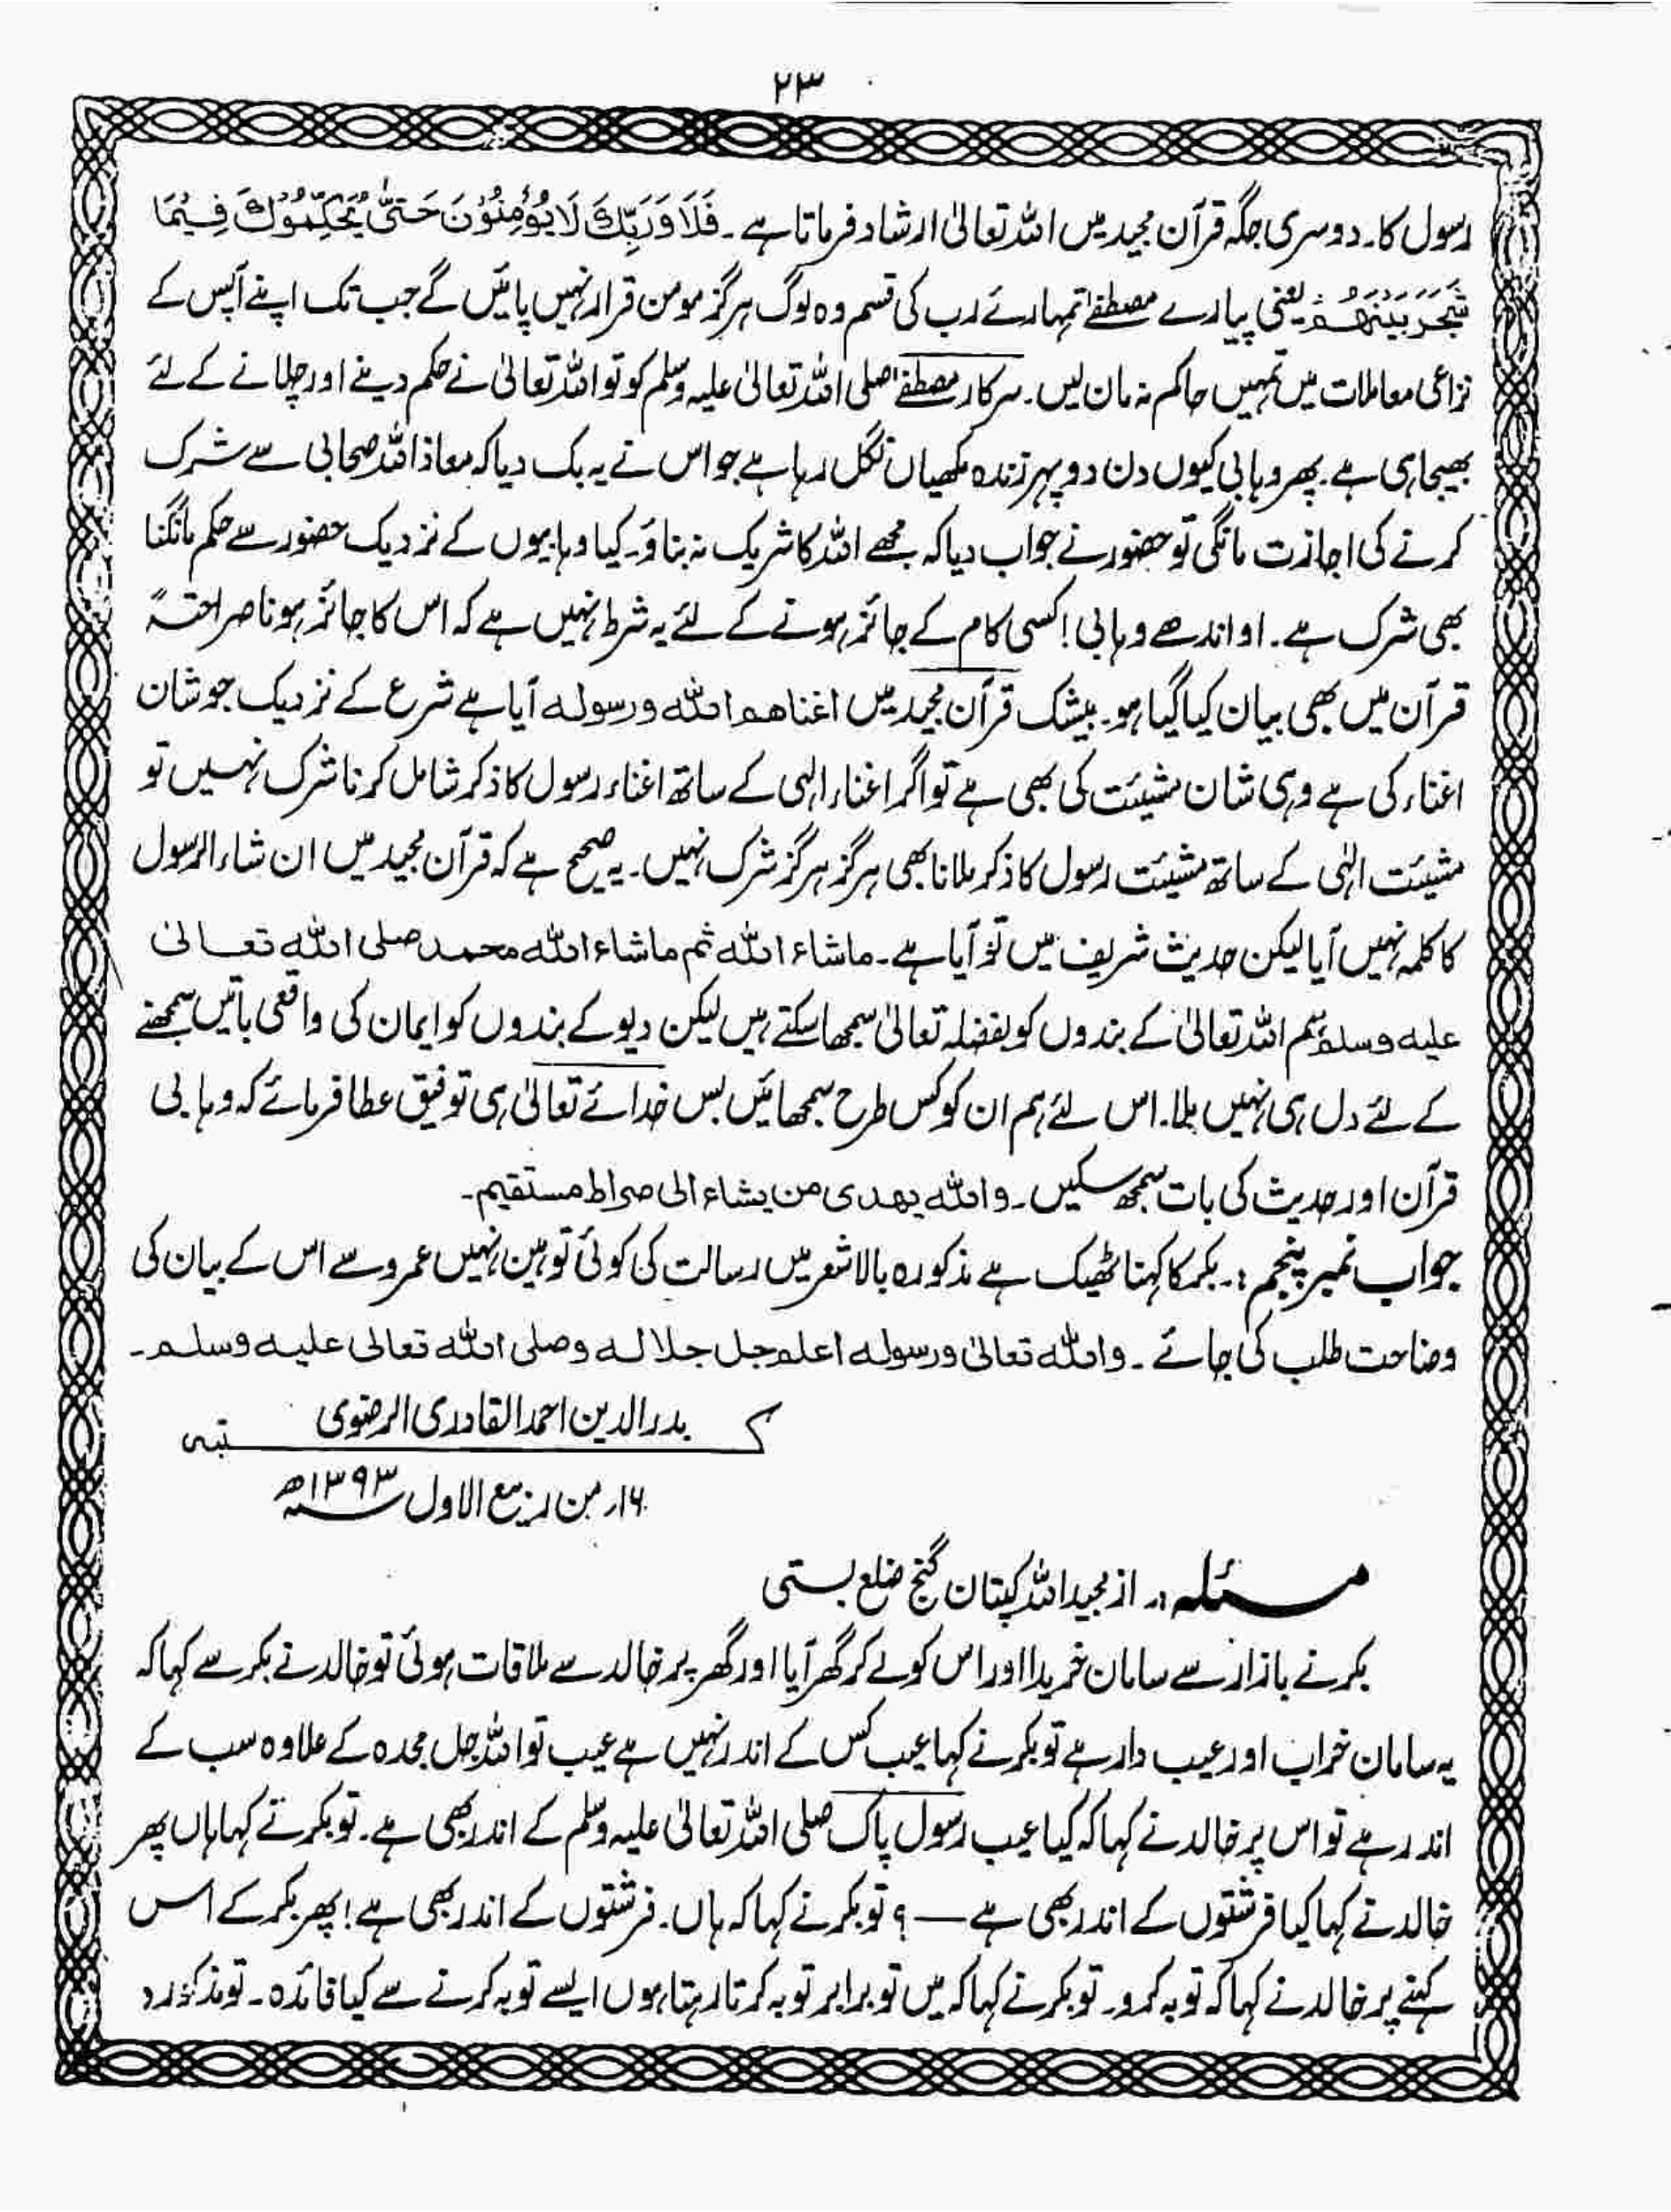 ۲۳
رسول کا۔ دوسری جگہ قرآن مجید میں اللہ تعالیٰ ارشاد فرماتا ہے۔ فَلَا وَرَبِّكَ لَا يُؤْمِنُوْنَ حَتّٰى يُحَكِّمُوْكَ فِيْمَا
شَجَرَ بَيْنَهُمْ یعنی پیارے مصطفےٰ تمہارے رب کی قسم وہ لوگ ہرگز مومن قرار نہیں پائیں گے جب تک اپنے آپس کے
نزاعی معاملات میں تمہیں حاکم نہ مان لیں۔ سرکار مصطفےٰ صلی اللہ تعالیٰ علیہ وسلم کو تو اللہ تعالیٰ نے حکم دینے اور چلانے کے لئے
بھیجا ہی ہے۔ پھر وہابی کیوں دن دوپہر زندہ مکھیاں نگل رہا ہے جو اس نے یہ بک دیا کہ معاذ اللہ صحابی سے شرک
کرنے کی اجازت مانگی تو حضور نے جواب دیا کہ مجھے اللہ کا شریک نہ بناؤ۔ کیا وہابیوں کے نزدیک حضور سے حکم مانگنا
بھی شرک ہے۔ او اندھے وہابی! کسی کام کے جائز ہونے کے لئے یہ شرط نہیں ہے کہ اس کا جائز ہونا صراحتہً
قرآن میں بھی بیان کیا گیا ہو۔ بیشک قرآن مجید میں اغناهم الله ورسوله آیا ہے شرع کے نزدیک جو شان
اغناء کی ہے وہی شان مشیئت کی بھی ہے تو اگر اغناء الٰہی کے ساتھ اغناء رسول کا ذکر شامل کرنا شرک نہیں تو
مشیئت الٰہی کے ساتھ مشیئت رسول کا ذکر ملانا بھی ہرگز ہرگز شرک نہیں۔ یہ صحیح ہے کہ قرآن مجید میں ان شاء الرسول
کا کلمہ نہیں آیا لیکن حدیث شریف میں تو آیا ہے۔ ماشاء الله ثم ماشاء الله محمد صلی الله تعالیٰ
علیه وسلم ہم اللہ تعالیٰ کے بندوں کو بفضلہ تعالیٰ سمجھا سکتے ہیں لیکن دیو کے بندوں کو ایمان کی واقعی باتیں سمجھنے
کے لئے دل ہی نہیں ملا۔ اس لئے ہم ان کو کس طرح سمجھائیں بس خدائے تعالیٰ ہی توفیق عطا فرمائے کہ وہابی
قرآن اور حدیث کی بات سمجھ سکیں۔ والله یهدی من یشاء الی صراط مستقیم۔
جواب نمبر پنجم :۔ بکر کا کہنا ٹھیک ہے مذکورہ بالا شعر میں رسالت کی کوئی توہین نہیں عمرو سے اس کے بیان کی
وضاحت طلب کی جائے ۔ والله تعالیٰ ورسوله اعلم جل جلاله وصلی الله تعالی علیه وسلم۔
بدر الدین احمد القادری الرضوی
کتبہ
۱۶؍ من ربیع الاول ۱۳۹۳ھ
مسئلہ :۔ از مجید اللہ کپتان گنج ضلع بستی
بکر نے بازار سے سامان خریدا اور اس کو لے کر گھر آیا اور گھر پر خالد سے ملاقات ہوئی تو خالد نے بکر سے کہا کہ
یہ سامان خراب اور عیب دار ہے تو بکر نے کہا عیب کس کے اندر نہیں ہے عیب تو اللہ جل مجدہ کے علاوہ سب کے
اندر ہے تو اس پر خالد نے کہا کہ کیا عیب رسول پاک صلی اللہ تعالیٰ علیہ وسلم کے اندر بھی ہے۔ تو بکر نے کہا ہاں پھر
خالد نے کہا کیا فرشتوں کے اندر بھی ہے — ؟ تو بکر نے کہا کہ ہاں۔ فرشتوں کے اندر بھی ہے! پھر بکر کے اس
کہنے پر خالد نے کہا کہ توبہ کرو۔ تو بکر نے کہا کہ میں تو برابر توبہ کرتا رہتا ہوں ایسے توبہ کرنے سے کیا فائدہ۔ تو مذکورہ